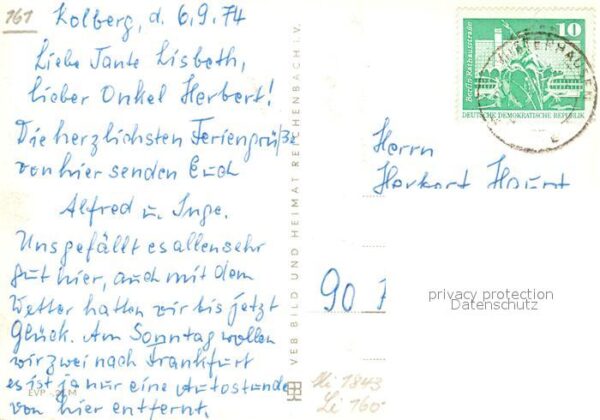 161
Kolberg, d. 6.9.74
Liebe Tante Lisbeth,
lieber Onkel Herbert!
Die herzlichsten Feriengrüße
von hier senden Euch
Alfred u. Inge.
Uns gefällt es allen sehr
gut hier, auch mit dem
Wetter hatten wir bis jetzt
Glück. Am Sonntag wollen
wir zwei nach Frankfurt
es ist ja nur eine Autostunde
von hier entfernt.
EVP
VEB BILD UND HEIMAT REICHENBACH I. V.
10
Berlin, Rathausstraße
DEUTSCHE DEMOKRATISCHE REPUBLIK
Herrn
Herbert
90
privacy protection
Datenschutz
Mi 1843
Li 160